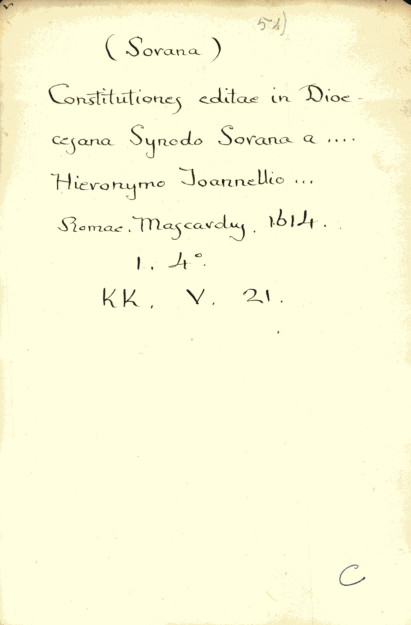 51)
(Sorana)
Constitutiones editae in Dioe-
cesana Synodo Sorana a ....
Hieronymo Joannellio ...
Romae. Mascardus. 1614.
1. 4°.
KK. V. 21.
C